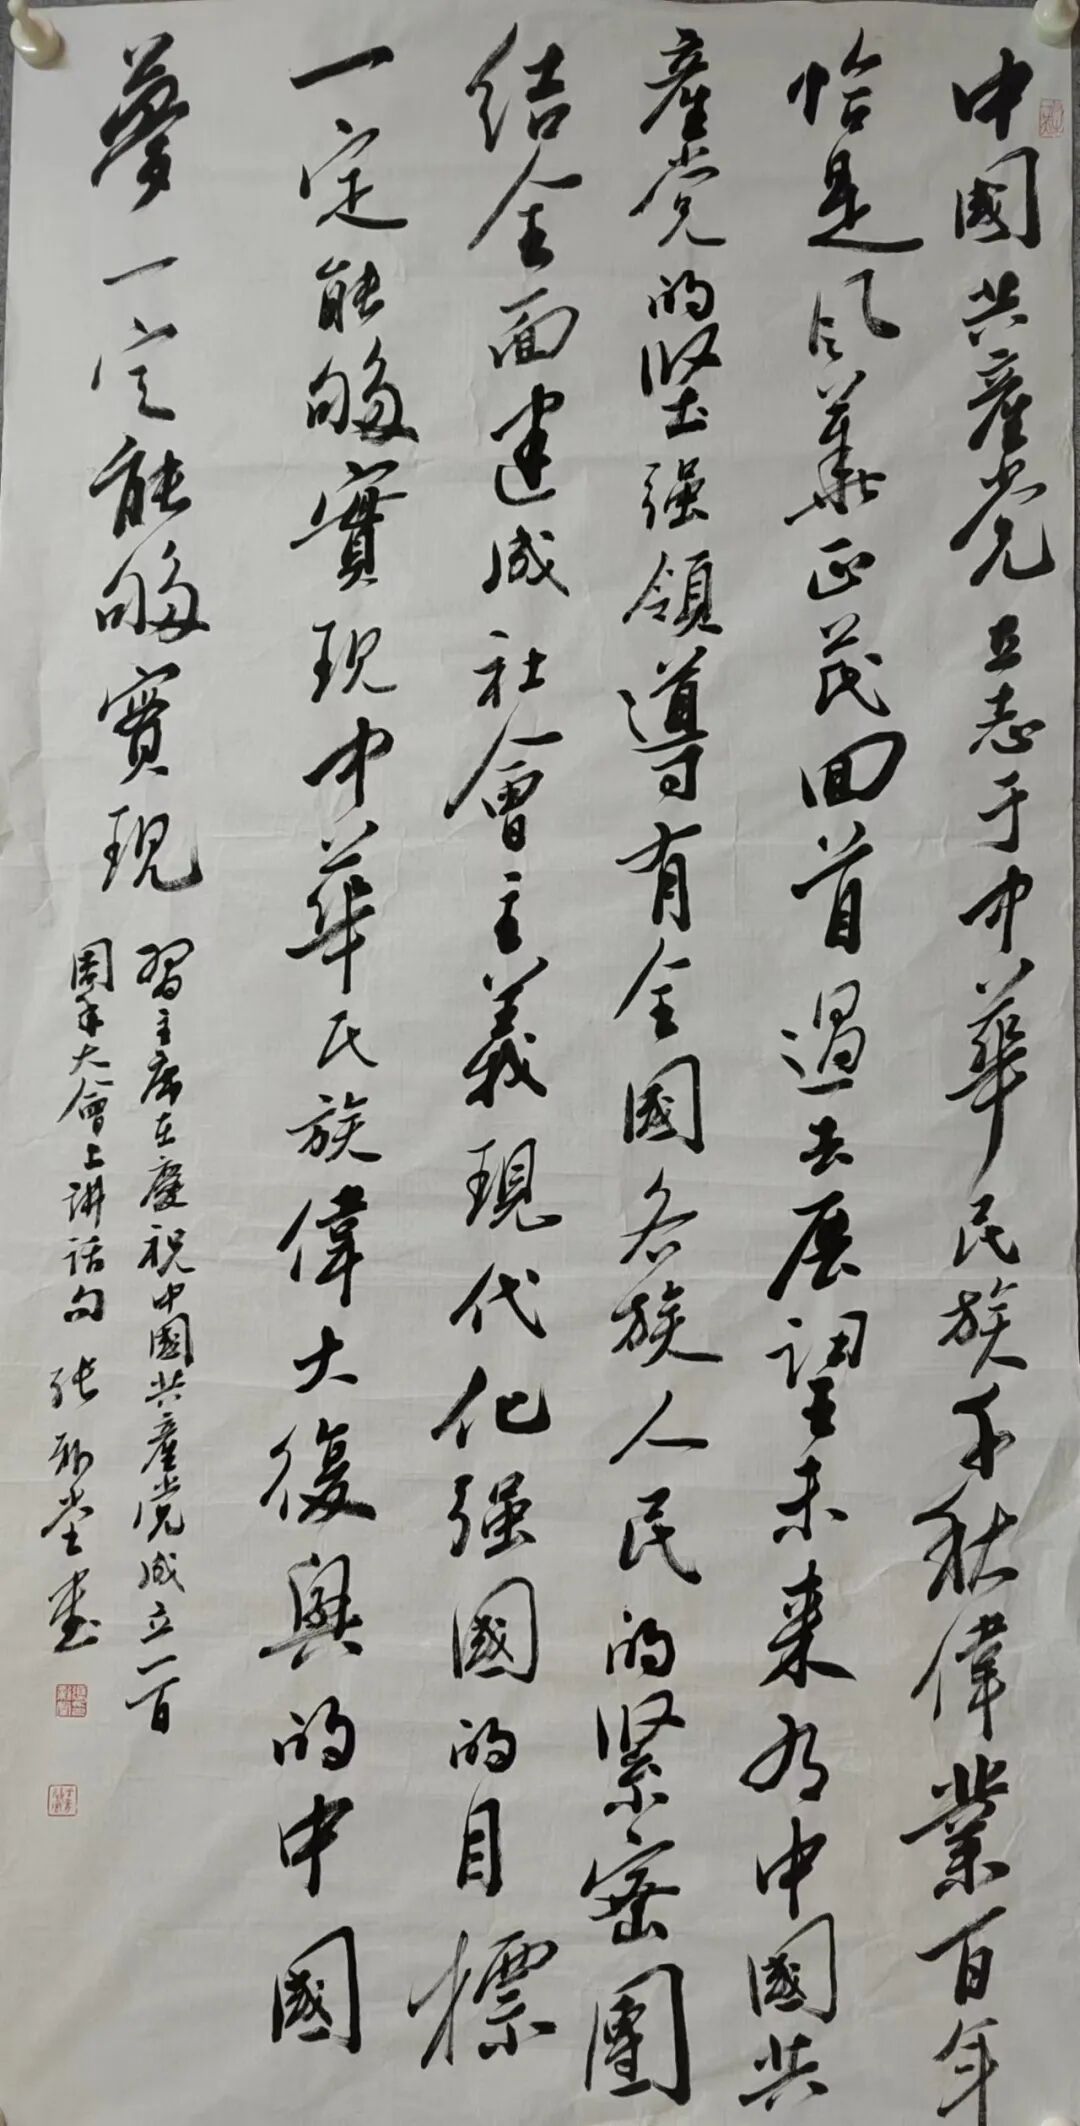 中國共產党立志于中華民族千秋偉業百年
恰是风華正茂回首過去展望未来有中國共
產党的坚强領導有全國各族人民的緊密團
结全面建成社會主義現代化强國的目標
一定能够實現中華民族偉大復興的中國
夢一定能够實現
習主席在慶祝中國共產党成立一百
周年大會上講话句 张
堂書